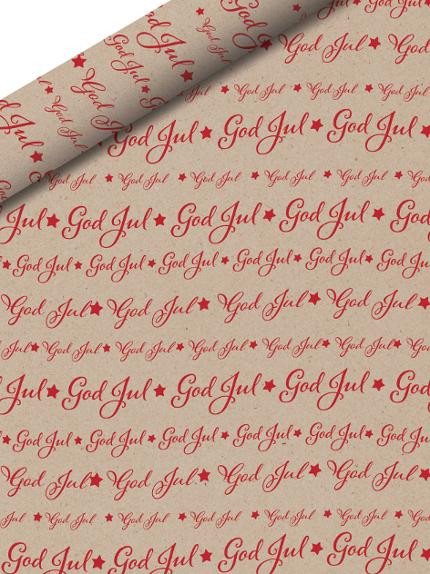 God Jul God Jul
God Jul God Jul God Jul
God Jul God Jul God Jul
God Jul God Jul God Jul God Jul God Jul
Jul God Jul God Jul God Jul God
God Jul God Jul God Jul God Jul God Jul God Jul
God Jul God Jul God Jul God Jul
God Jul God Jul God Jul God Jul God Jul
Jul God Jul God Jul God Jul God
God Jul God Jul God Jul God Jul God Jul God Jul
God Jul God Jul God Jul God Jul
God Jul God Jul God Jul God Jul God Jul
God Jul God Jul God Jul God Jul